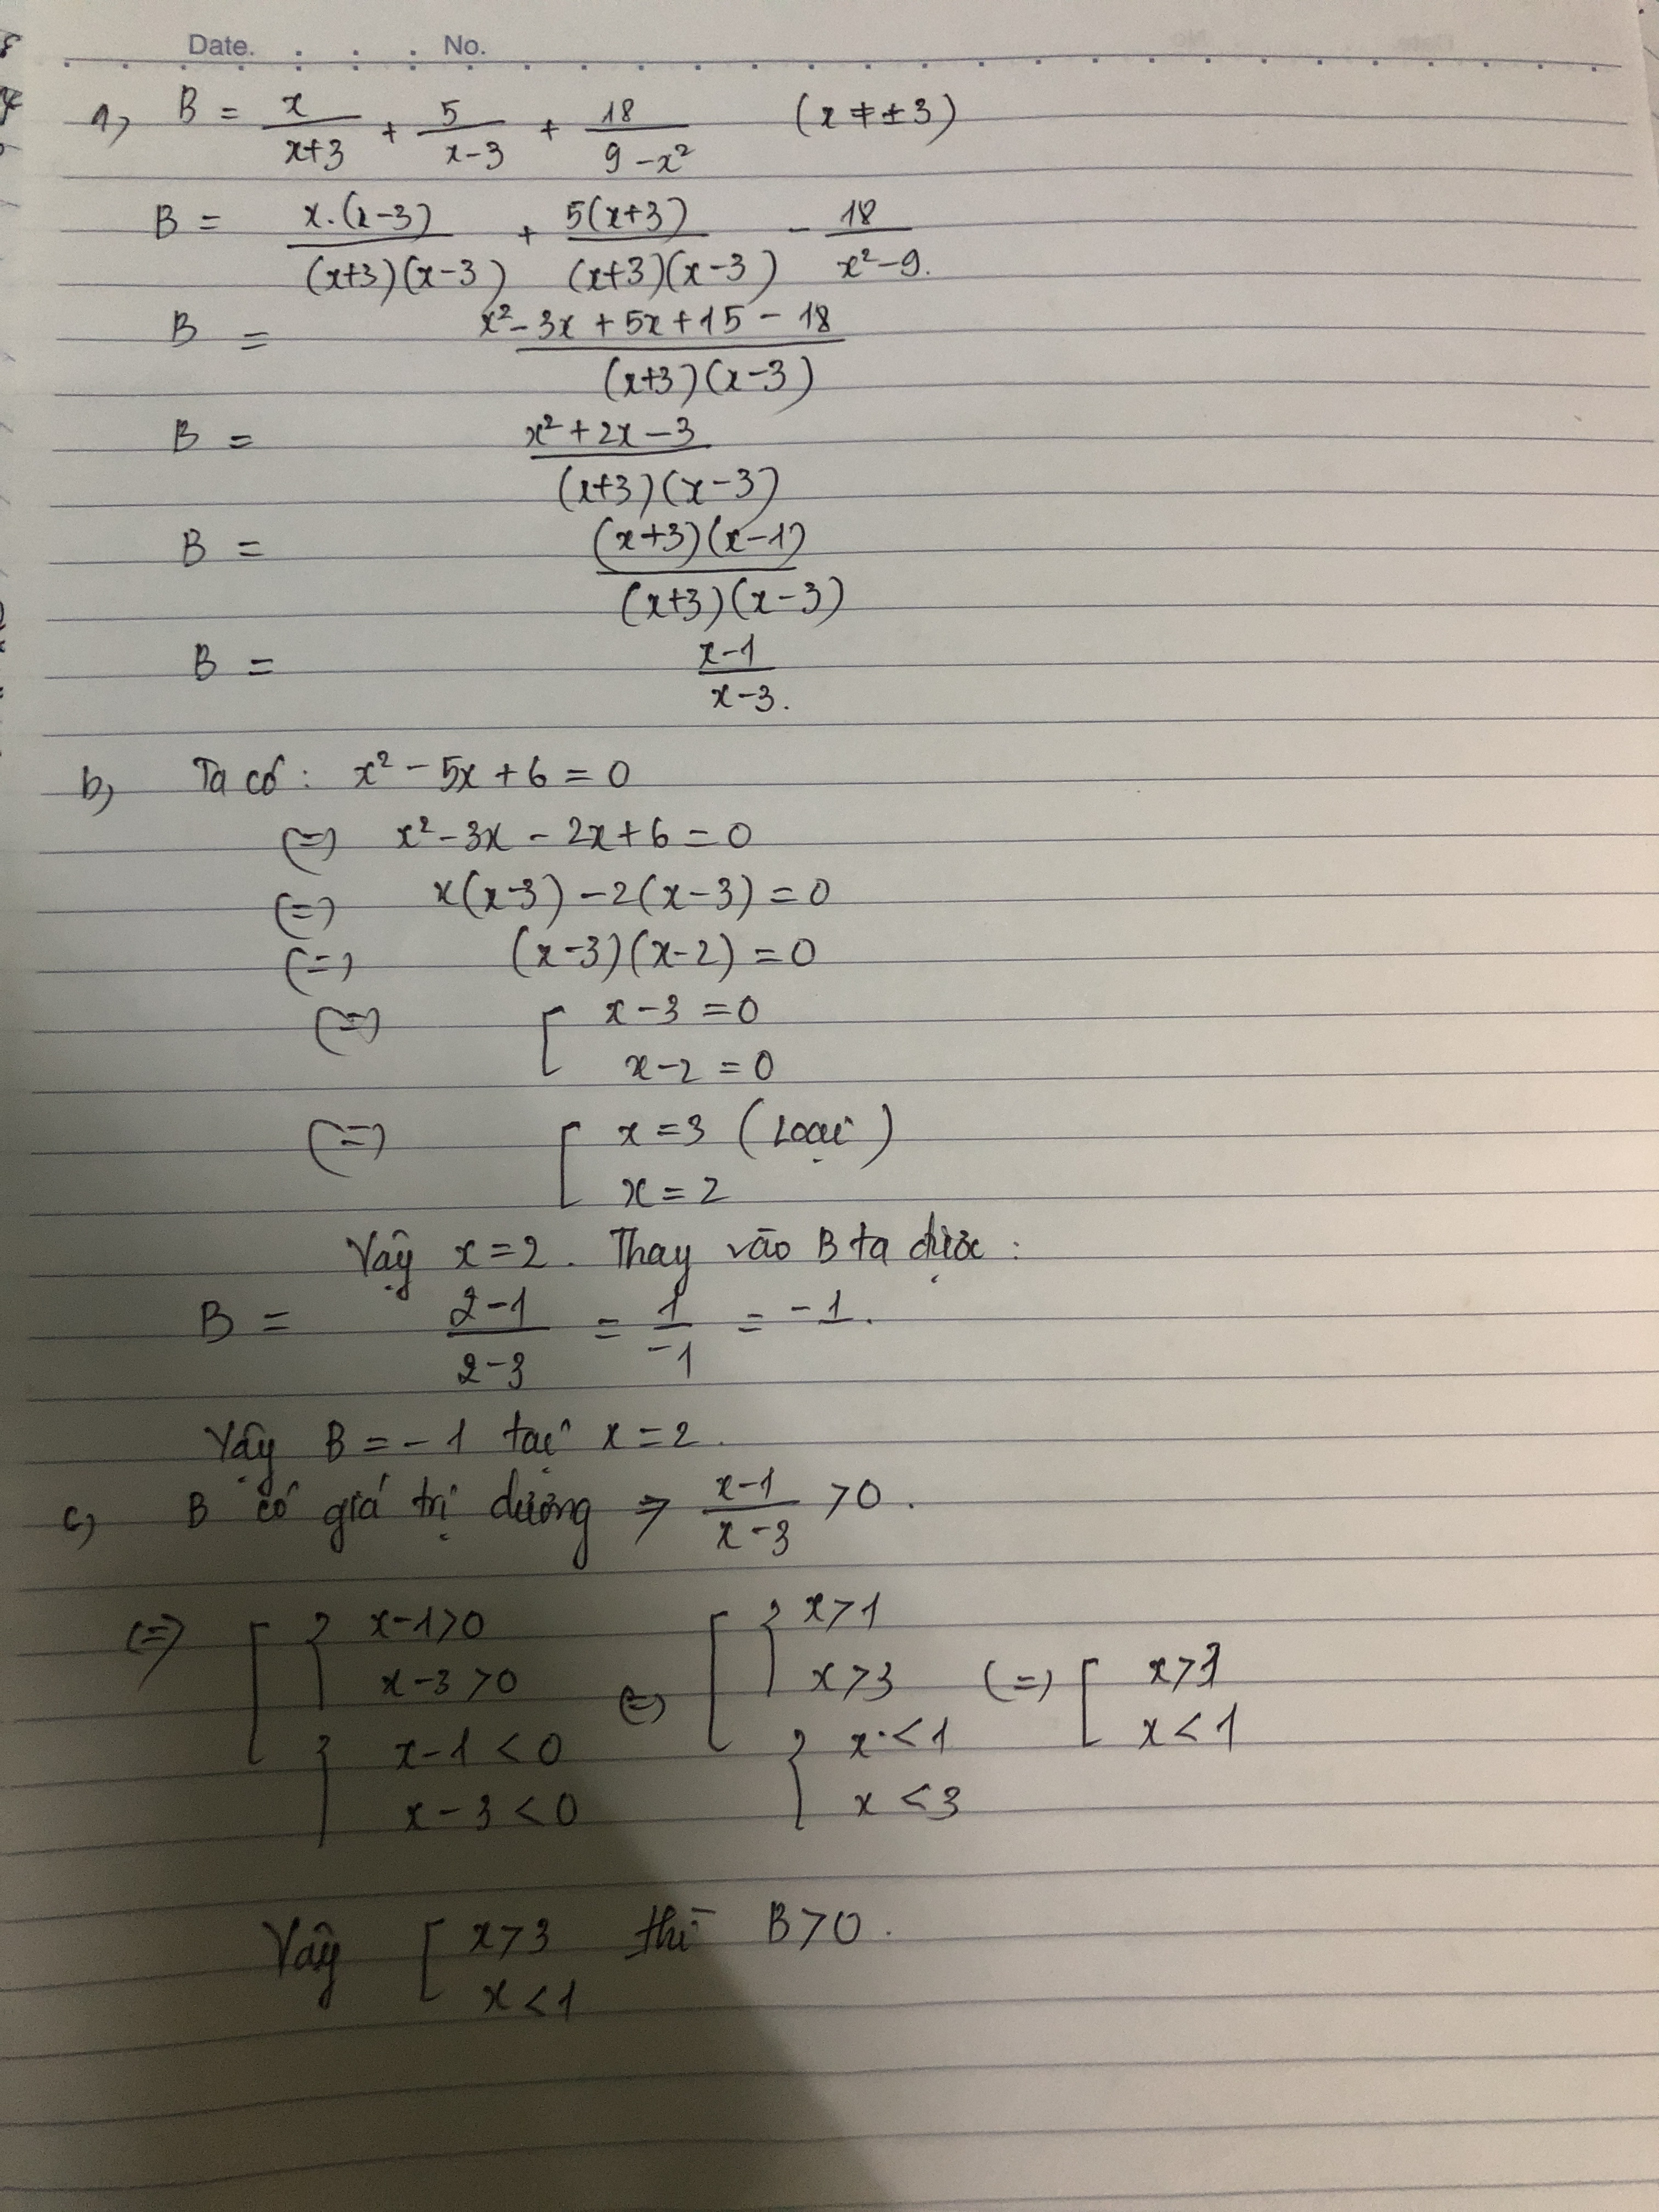 Date. No.
a, B = x/(x+3) + 5/(x-3) + 18/(9-x²) (x ≠ ±3)
B = x.(x-3)/((x+3)(x-3)) + 5(x+3)/((x+3)(x-3)) - 18/(x²-9).
B = (x²-3x+5x+15-18)/((x+3)(x-3))
B = (x²+2x-3)/((x+3)(x-3))
B = (x+3)(x-1)/((x+3)(x-3))
B = (x-1)/(x-3).
b, Ta có: x² - 5x + 6 = 0
(=) x² - 3x - 2x + 6 = 0
(=) x(x-3) - 2(x-3) = 0
(=) (x-3)(x-2) = 0
(=) [ x-3 = 0
x-2 = 0
(=) [ x = 3 (Loại)
x = 2
Vậy x = 2. Thay vào B ta được:
B = (2-1)/(2-3) = 1/-1 = -1.
Vậy B = -1 tại x = 2.
c, B có giá trị dương => (x-1)/(x-3) > 0.
(=) [ { x-1>0 (=) [ { x>1
x-3>0 x>3 (=) [ x>1
{ x-1<0 { x<1 x<1
x-3<0 x<3
Vậy [ x>3 thì B>0.
x<1